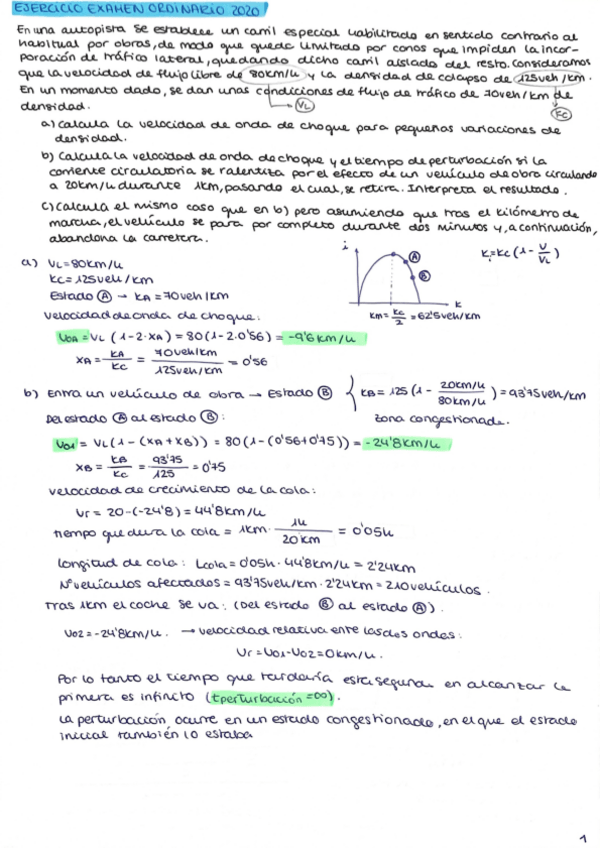 EJERCICIO EXAMEN ORDINARIO 2020
En una autopista se establece un carril especial habilitado en sentido contrario al
habitual por obras, de modo que queda limitado por conos que impiden la incor-
poración de tráfico lateral, quedando dicho carril aislado del resto. Consideramos
que la velocidad de flujo libre de 80km/h y la densidad de colapso de 125veh/km.
En un momento dado, se dan unas condiciones de flujo de tráfico de 70veh/km de
densidad.
VL
KC
a) Calcula la velocidad de onda de choque para pequeñas variaciones de
densidad.
b) Calcula la velocidad de onda de choque y el tiempo de perturbación si la
corriente circulatoria se ralentiza por el efecto de un vehículo de obra circulando
a 20km/h durante 1km, pasando el cual, se retira. Interpreta el resultado.
c) Calcula el mismo caso que en b) pero asumiendo que tras el kilómetro de
marcha, el vehículo se para por completo durante dos minutos y, a continuación,
abandona la carretera.
a) VL = 80km/h
KC = 125veh/km
Estado A → KA = 70veh/km
velocidad de onda de choque:
UOA = VL (1-2·XA) = 80(1-2·0'56) = -9'6km/h
XA = KA/KC = 70veh/km / 125veh/km = 0'56
i
A
B
K
Km = KC/2 = 62'5veh/km
K = KC (1 - V/VL)
b) Entra un vehículo de obra → Estado B { KB = 125 (1 - 20km/h / 80km/h) = 93'75veh/km
Del estado A al estado B: zona congestionada.
UO1 = VL (1 - (XA + XB)) = 80(1-(0'56+0'75)) = -24'8km/h
XB = KB/KC = 93'75/125 = 0'75
velocidad de crecimiento de la cola:
Ur = 20-(-24'8) = 44'8km/h
tiempo que dura la cola = 1km · 1h/20km = 0'05h
longitud de cola: Lcola = 0'05h · 44'8km/h = 2'24km
Nº vehículos afectados = 93'75veh/km · 2'24km = 210 vehículos.
Tras 1km el coche se va: (Del estado B al estado A).
UO2 = -24'8km/h. → velocidad relativa entre las dos ondas:
Ur = UO1 - UO2 = 0km/h.
Por lo tanto el tiempo que tardaría esta segunda en alcanzar la
primera es infinito (tperturbación = ∞).
La perturbación, ocurre en un estado congestionado, en el que el estado
inicial también lo estaba
1